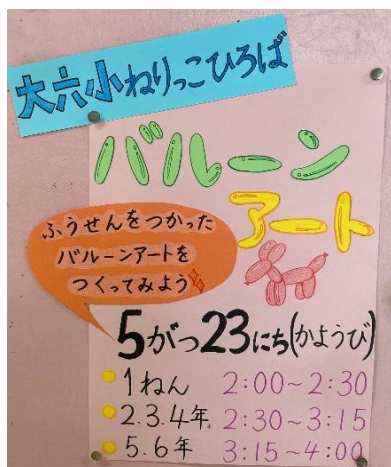 大六小ねりっこひろば
バルーン
アート
ふうせんをつかった
バルーンアートを
つくってみよう
5がつ23にち(かようび)
1ねん 2:00~2:30
2.3.4年 2:30~3:15
5.6年 3:15~4:00